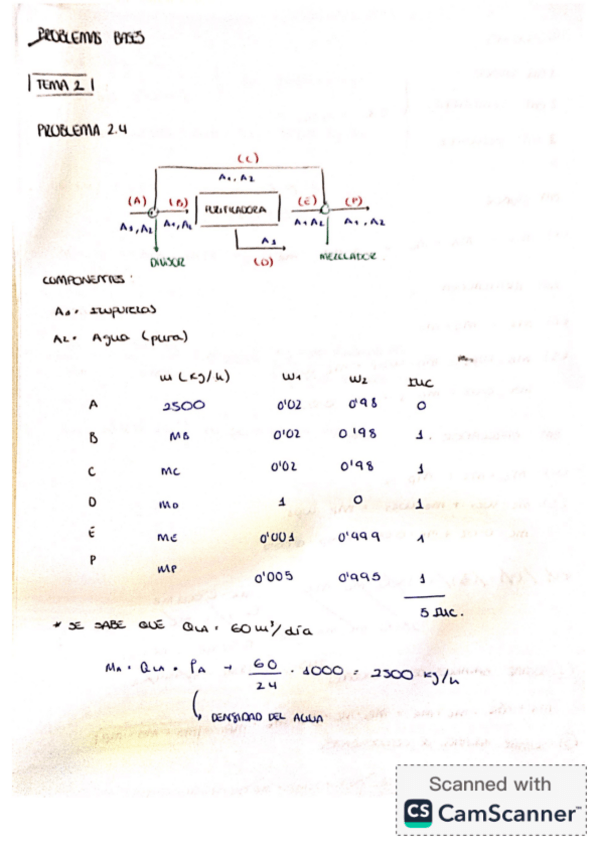 PROBLEMAS BASES
TEMA 2
PROBLEMA 2.4
(C)
A1, A2
(A) (B) PURIFICADORA (E) (P)
A1, A2 A1, A2 A1 A2 A1, A2
A1
DIVISOR (D) MEZCLADOR
COMPONENTES:
A1: Impurezas
A2: Agua (pura)
m (kg/h) W1 W2 INC
A 2500 0'02 0'98 0
B MB 0'02 0'98 1.
C MC 0'02 0'98 1
D MD 1 0 1
E ME 0'001 0'999 1
P MP 0'005 0'995 1
5 INC.
* SE SABE QUE QLA = 60 m³/día
MA = QLA · PA → 60/24 · 1000 = 2500 kg/h
DENSIDAD DEL AGUA
Scanned with
CS CamScanner